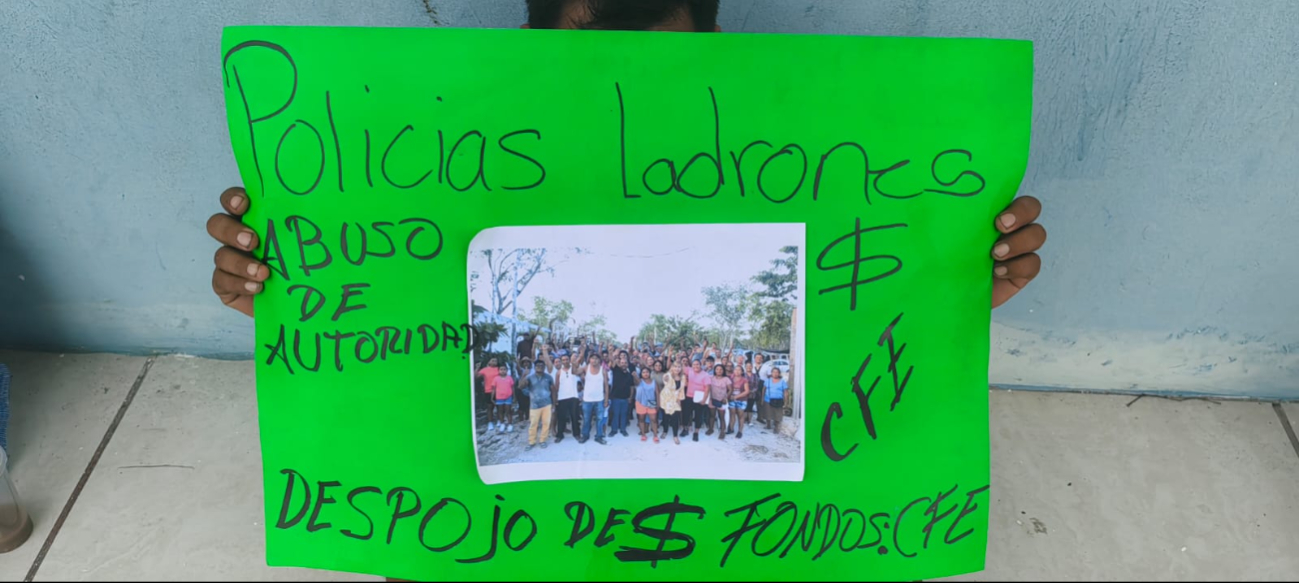 Policias Ladrones
ABUSO
DE
AUTORIDAD
$
CFE
DESPOJO DE $ FONDOS: CFE